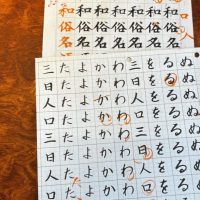 和俗名
和俗名
和俗名
和俗名
和俗名
和俗名
和俗名
ぬぬぬぬぬぬぬ
るるるるるるるる
をををををををを
三日人口三日人口
わわわわわわわわ
かかかかかかかか
よよよよよよよよ
たたたたたたたた
三日人口三日人口